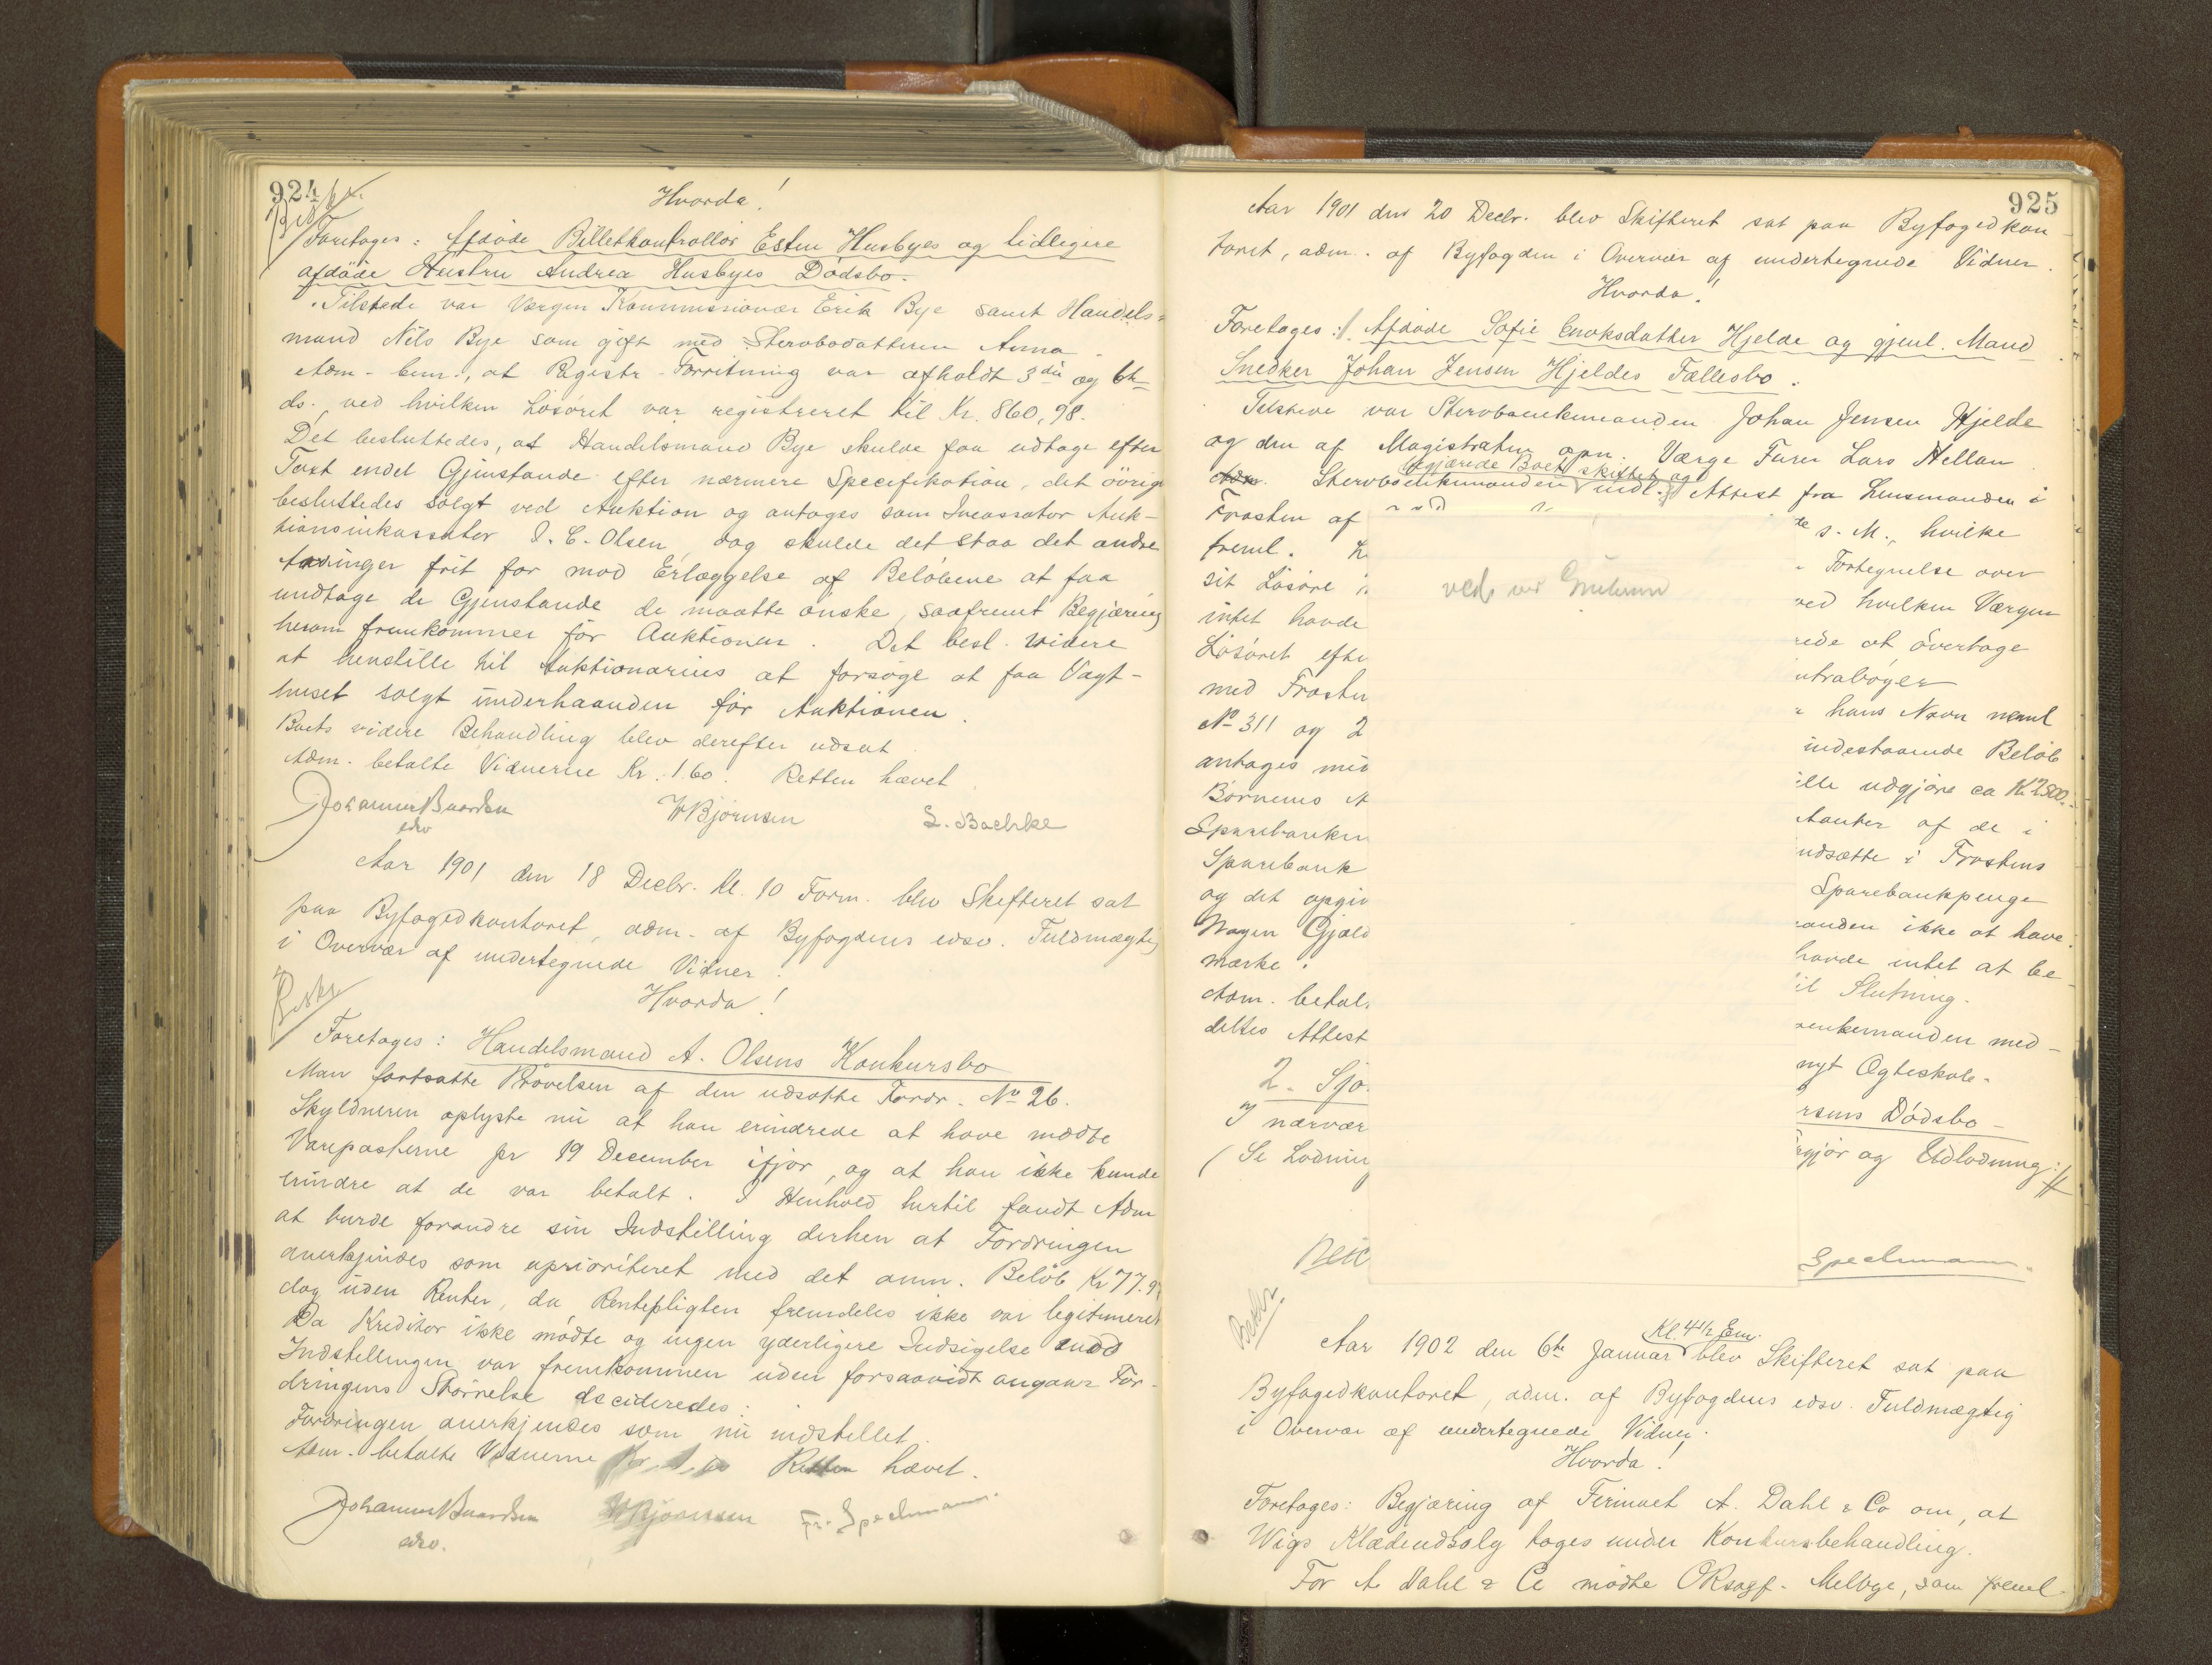 924
Beskr.
Hvorda!
Foretages: Afdöde Billetkontrollör Esten Husbyes og tidligere
afdöde Hustru Andrea Husbyes Dödsbo.
Tilstede var Værgen Kommissionær Erik Bye samt Handels-
mand Nils Bye som gift med Stervbodatteren Anna.
Adm. bem., at Registr.-Forretning var afholdt 3die og 6te
ds. ved hvilken Lösöret var registreret til Kr. 860,98.
Det besluttedes, at Handelsmand Bye skulde faa udtage efter
Taxt endel Gjenstande efter nærmere Specefikation, det övrige
besluttedes solgt ved Auktion og antages som Incassator Auk-
tionsinkassator I. C. Olsen, dog skulde det staa det andre
Arvinger frit for mod Erlæggelse af Belöbene at faa
undtage de Gjenstande de maatte önske, saafremt Begjæring
herom fremkommer för Auktionen. Det besl. videre
at henstille til Auktionarius at forsöge at faa Vagt-
huset solgt underhaanden för Auktionen.
Boets videre Behandling blev derefter udsat
Adm. betalte Vidnerne Kr. 1.60. Retten hævet
Johannes Baardsen
edsv
W Björnsen
L. Bachke
Aar 1901 den 18 Decbr. Kl. 10 Form. blev Skifteret sat
paa Byfogedkontoret, adm. af Byfogdens edsv. Fuldmægtig
i Overvær af undertegnede Vidner:
Beskr
Hvorda!
Foretages: Handelsmand A. Olsens Konkursbo
Man fortsatte Prövelsen af den udsatte Fordr. No 26.
Skyldneren oplyste nu at han erindrede at have mødte
Vareposterne pr 19 December ifjor, og at han ikke kunde
erindre at de var betalt. I Henhold hertil fandt Adm
at burde forandre sin Indstilling derhen at Fordringen
anerkjendes som uprioriteret med det anm. Belöb Kr 77.9
dog uden Renter, da Rentepligten fremdeles ikke var legitimeret
Da Kreditor ikke mödte og ingen yderligere Indsigelse mod
Indstillingen var fremkommen uden forsaavidt angaar For-
dringens Störrelse decideredes:
Fordringen anerkjendes som nu indstillet.
Adm. betalte Vidnerne Kr. Retten hævet.
Johannes Baardsen
edsv.
W Björnsen
Fr. Speckmann.
925
Aar 1901 den 20 Decbr. blev Skifteret sat paa Byfogedkon-
toret, adm. af Byfogden i Overvær af undertegnede Vidner.
Hvorda!
Foretages: 1. Afdöde Sofie Enoksdatter Hjelde og gjenl. Mand
Snedker Johan Jensen Hjeldes Fællesbo.
Tilstede var Stervboenkemanden Johan Jensen Hjelde
og den af Magistraten opn. Værge Furer Lars Hellan
begjærede Boet skiftet og
Adm. Stervboenkemanden indl. Attest fra Lensmanden i
Frosten af
te s. M., hvilke
freml.
Fortegnelse over
sit Lösöre
ved hvilken Værgen
intet havde
rede at overtage
Lösöret efte
ntraböger
med Frosten
hans Navn nemt
No 311 og 2
indestaaende Belöb
antages med
ille udgjöre ca Kr 2500.
Börnenes A
Sparebanken
udsætte i Frostens
Sparebank
Sparebankpenge
og det opgiv
anden ikke at have
Nogen Gjæld
havde intet at be-
mærke.
il Slutning.
Adm. betal.
enkemanden med-
deltes Attest
nyt Ægteskab.
2. Sjo
rsens Dödsbo
I nærvær
rgjör og Udlodning:
(Se Lodning
Speckmann.
Beskr.
Kl. 4 1/2 Em.
Aar 1902 den 6te Januar blev Skifteret sat paa
Byfogedkontoret, adm. af Byfogdens edsv. Fuldmægtig
i Overvær af undertegnede Vidner.
Hvorda!
Foretages: Begjæring af Firmaet A. Dahl & Co om, at
Wigs Klædeudsalg tages under Konkursbehandling.
For A Dahl & Co mödte ORsagf. Melbye, som freml.